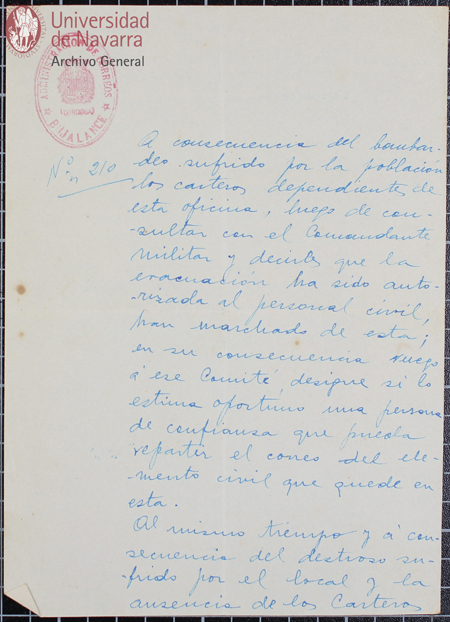 Universidad
de Navarra
Archivo General
ADMINISTRACIÓN DE CORREOS
BUJALANCE
Nº 210
A consecuencia del bombar-
deo sufrido por la población
los carteros dependientes de
esta oficina, luego de con-
-sultar con el Comandante
militar y decirles que la
evacuación ha sido auto-
-rizada al personal civil,
han marchado de esta;
en su consecuencia ruego
á ese Comité, designe si lo
estima oportuno una persona
de confianza que pueda
repartir el correo del ele-
-mento civil que quede en
esta.
Al mismo tiempo y á con-
secuencia del destroso su-
-frido por el local y la
ausencia de los Carteros